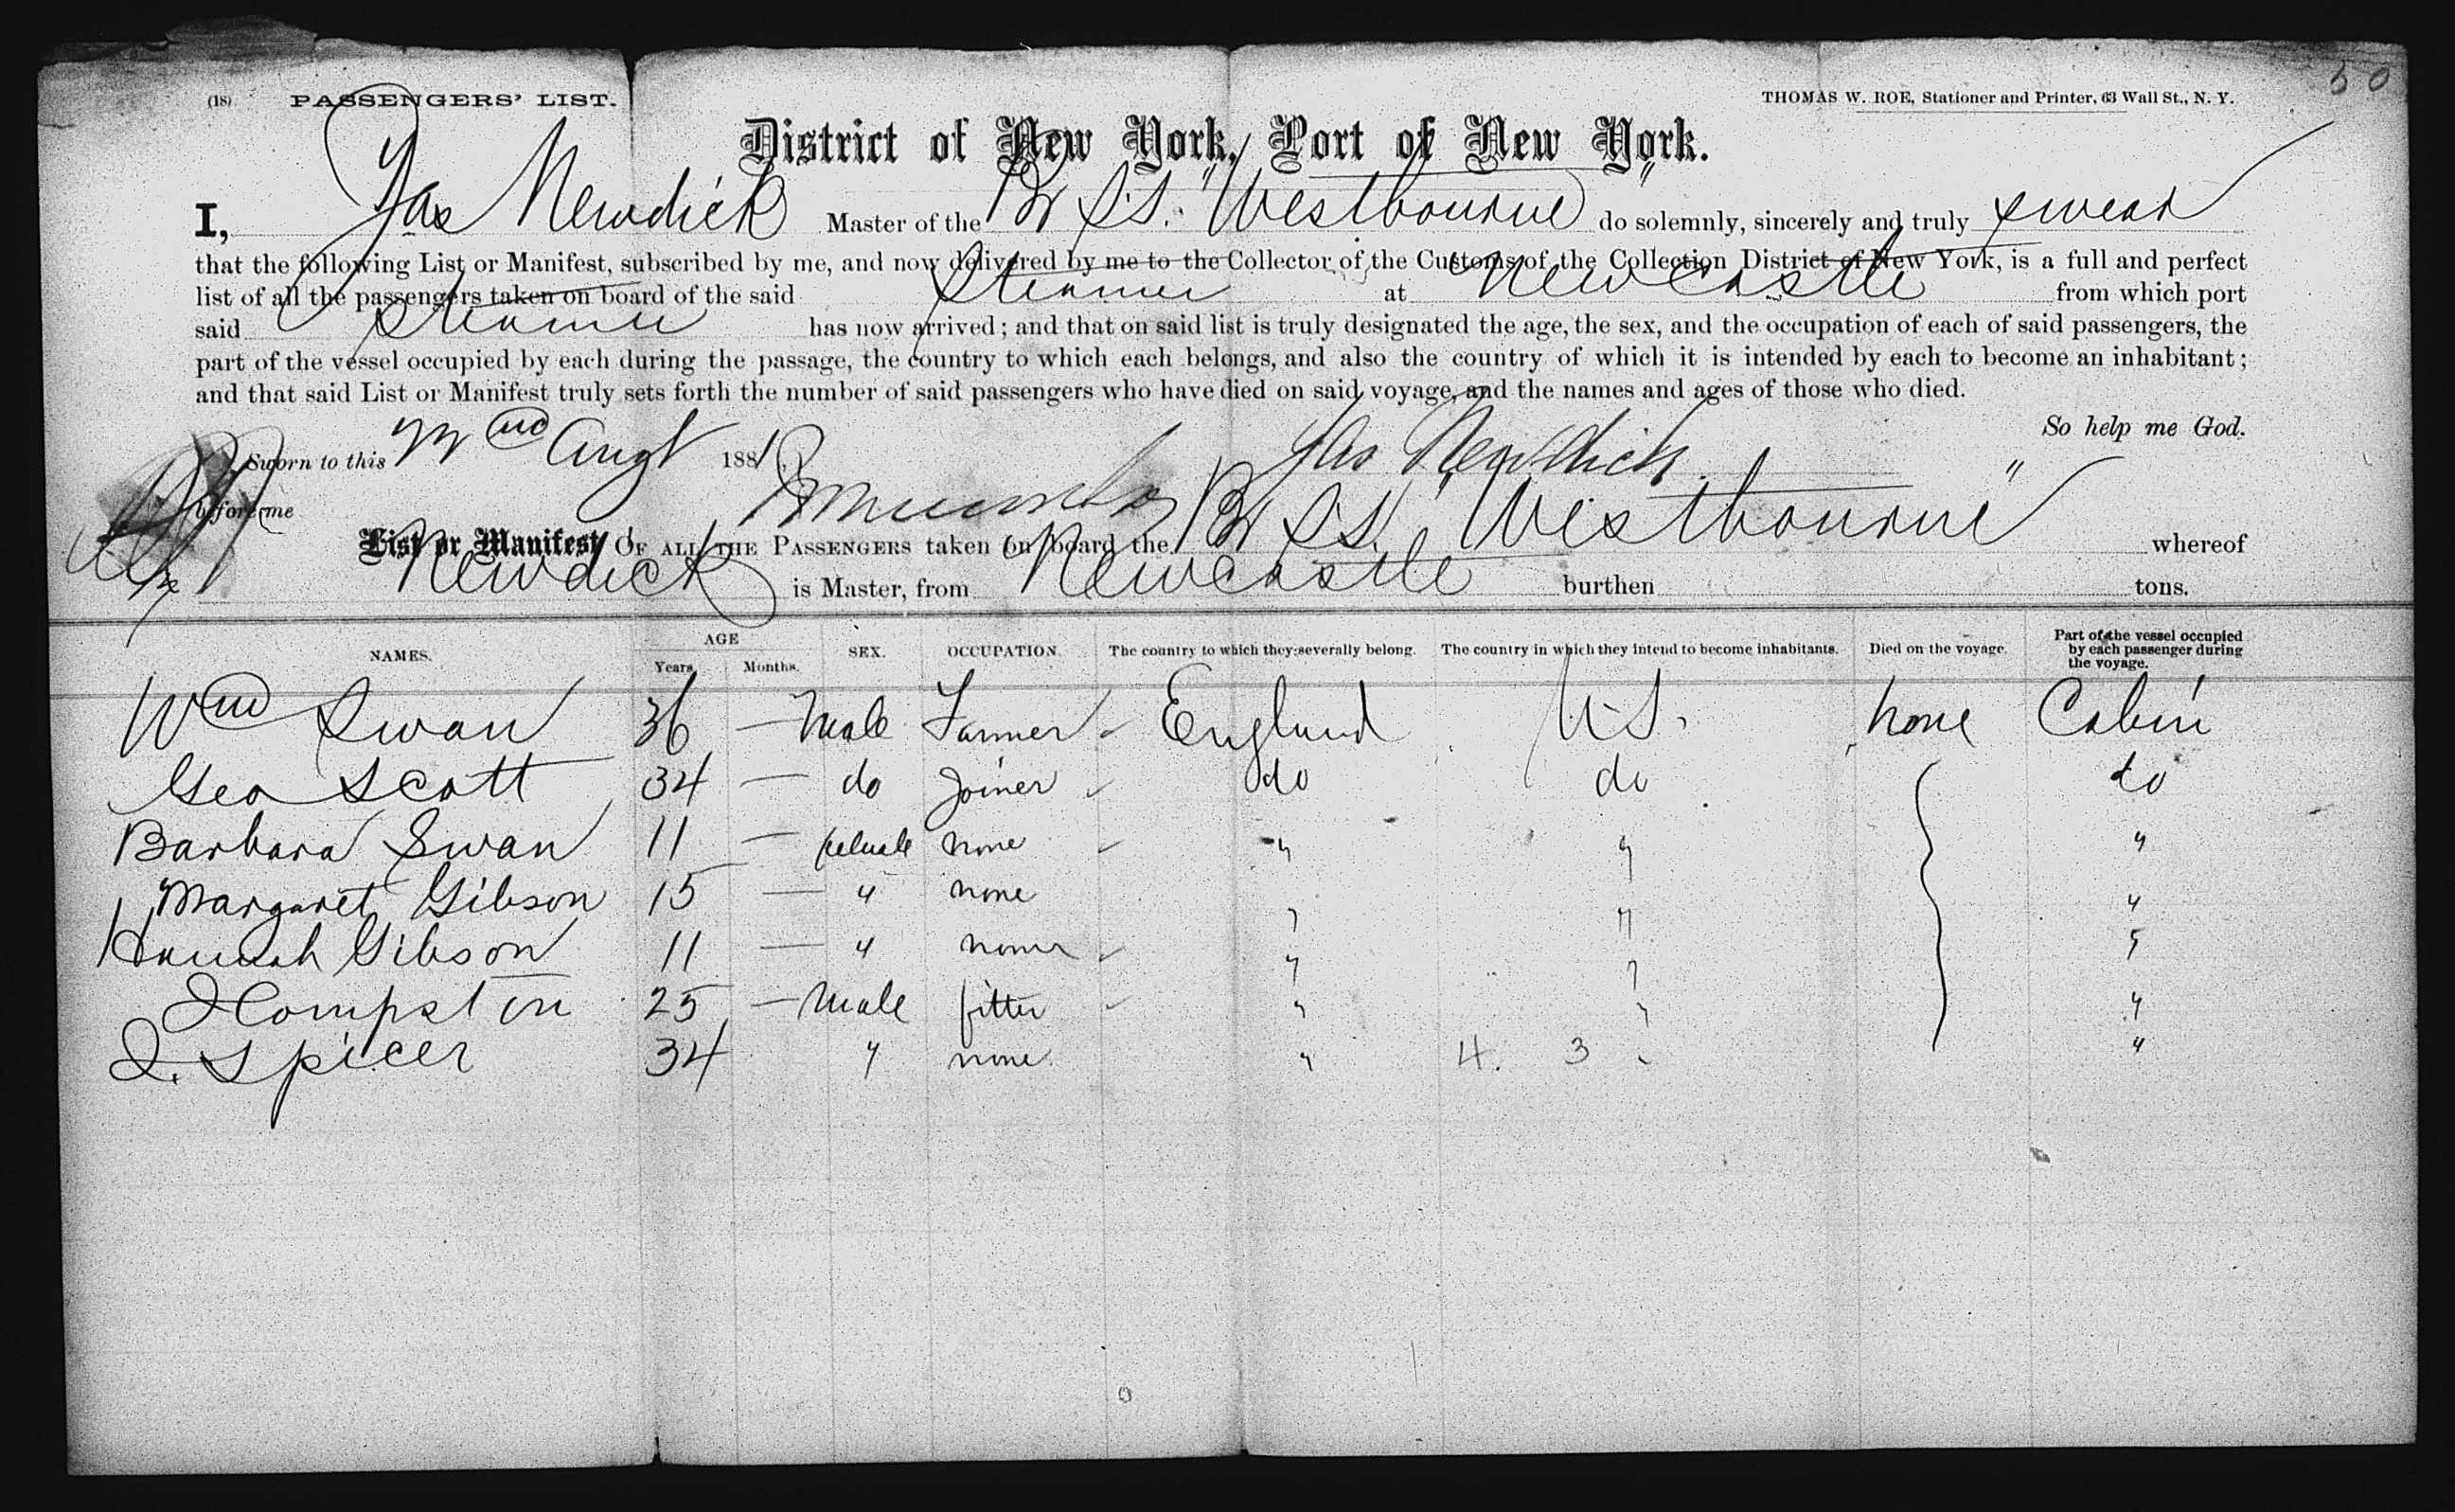 50
(18) PASSENGERS' LIST. THOMAS W. ROE, Stationer and Printer, 63 Wall St., N. Y.
District of New York, Port of New York.
I, Jas Newdick Master of the Br S.S. "Westbourne" do solemnly, sincerely and truly swear
that the following List or Manifest, subscribed by me, and now delivered by me to the Collector of the Customs of the Collection District of New York, is a full and perfect
list of all the passengers taken on board of the said Steamer at Newcastle from which port
said Steamer has now arrived; and that on said list is truly designated the age, the sex, and the occupation of each of said passengers, the
part of the vessel occupied by each during the passage, the country to which each belongs, and also the country of which it is intended by each to become an inhabitant;
and that said List or Manifest truly sets forth the number of said passengers who have died on said voyage, and the names and ages of those who died.
So help me God.
Sworn to this 22nd Augt 1881 Jas Newdick
before me
List or Manifest OF ALL THE PASSENGERS taken on board the Br S.S. "Westbourne" whereof
Newdick is Master, from Newcastle burthen tons.
NAMES. AGE Years. Months. SEX. OCCUPATION. The country to which they severally belong. The country in which they intend to become inhabitants. Died on the voyage. Part of the vessel occupied by each passenger during the voyage.
Wm Swan 36 — Male Farmer England U.S. None Cabin
Geo Scott 34 — do Joiner do do do
Barbara Swan 11 — female none " " "
Margaret Gibson 15 — " none " " "
Hannah Gibson 11 — " none " " "
25 — Male fitter " " "
J. Spicer 34 " none " 4. 3 "